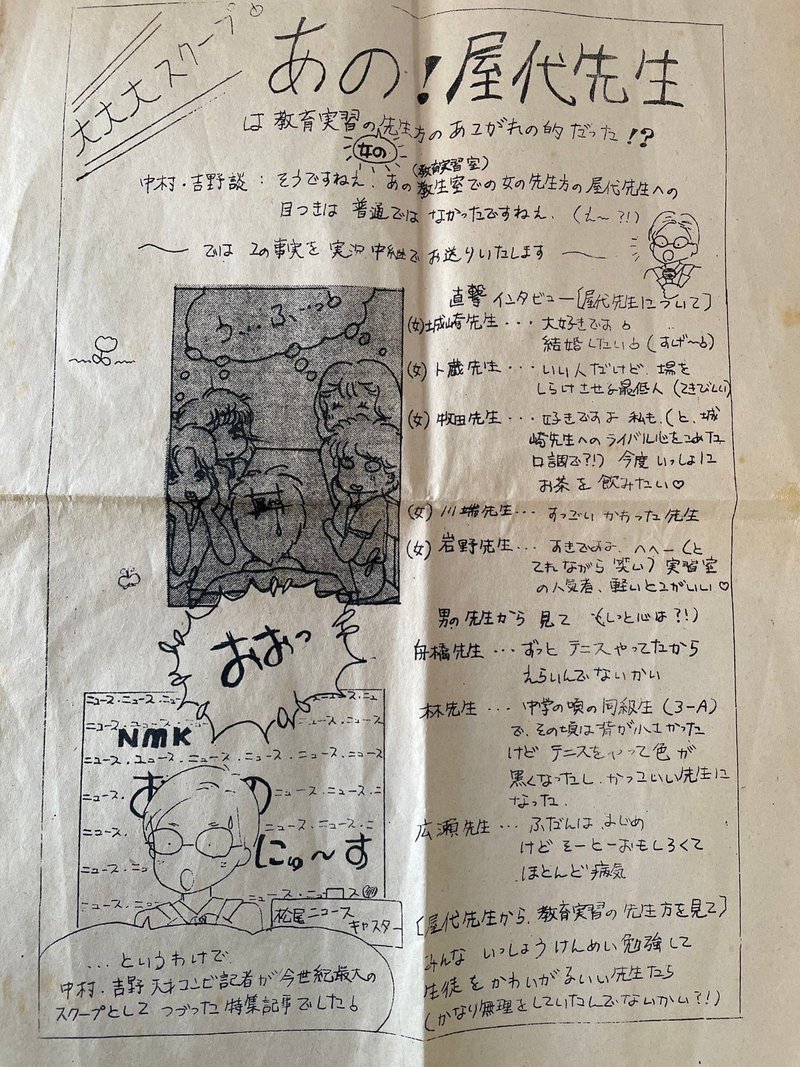 大大大スクープ
あの!屋代先生
は教育実習の先生方のあこがれの的だった!?
女の
(教育実習室)
中村・吉野談:そうですねえ、あの教生室での女の先生方の屋代先生への
目つきは普通ではなかったですねえ、(え〜?!)
〜では この事実を 実況中継で お送りいたします〜
直撃インタビュー[屋代先生について]
(女)城崎先生・・・大好きです
結婚したい(すげ〜)
(女)卜蔵先生・・・いい人だけど、場を
しらけさせる最低人(てきびしい)
(女)牧田先生・・・好きですよ 私も、(と、城
崎先生へのライバル心をこめた
口調で?!)今度いっしょに
お茶を飲みたい♡
(女)川端先生・・・すっごいかわった先生
(女)岩野先生・・・すきですよ へへー(と
てれながら笑い)実習室
の人気者、軽いとこがいい♡
男の先生から見て(しっと心は?!)
舟橋先生・・・ずっとテニスやってたから
えらいんでないかい
林先生・・・中学の頃の同級生(3-A)
で、その頃は背が小さかった
けどテニスをやって色が
黒くなったし、かっこいい先生に
なった.
広瀬先生・・・ふだんは まじめ
けど そーとーおもしろくて
ほとんど病気
[屋代先生から、教育実習の先生方を見て]
みんな いっしょうけんめい勉強して
生徒をかわいがるいい先生たち
(かなり無理をしていたんでないかい?!)
う…ふ…っ
おおっ
ニュース・ニュース・ニュース・ニュース・ニュ
NMK
ニュース・ニュース・ニュース・ニュース・ニュース
にゅ〜す
松尾ニュース
キャスター
・・・というわけで、
中村・吉野 天才コンビ記者が今世紀最大の
スクープとして つづった特集記事でした